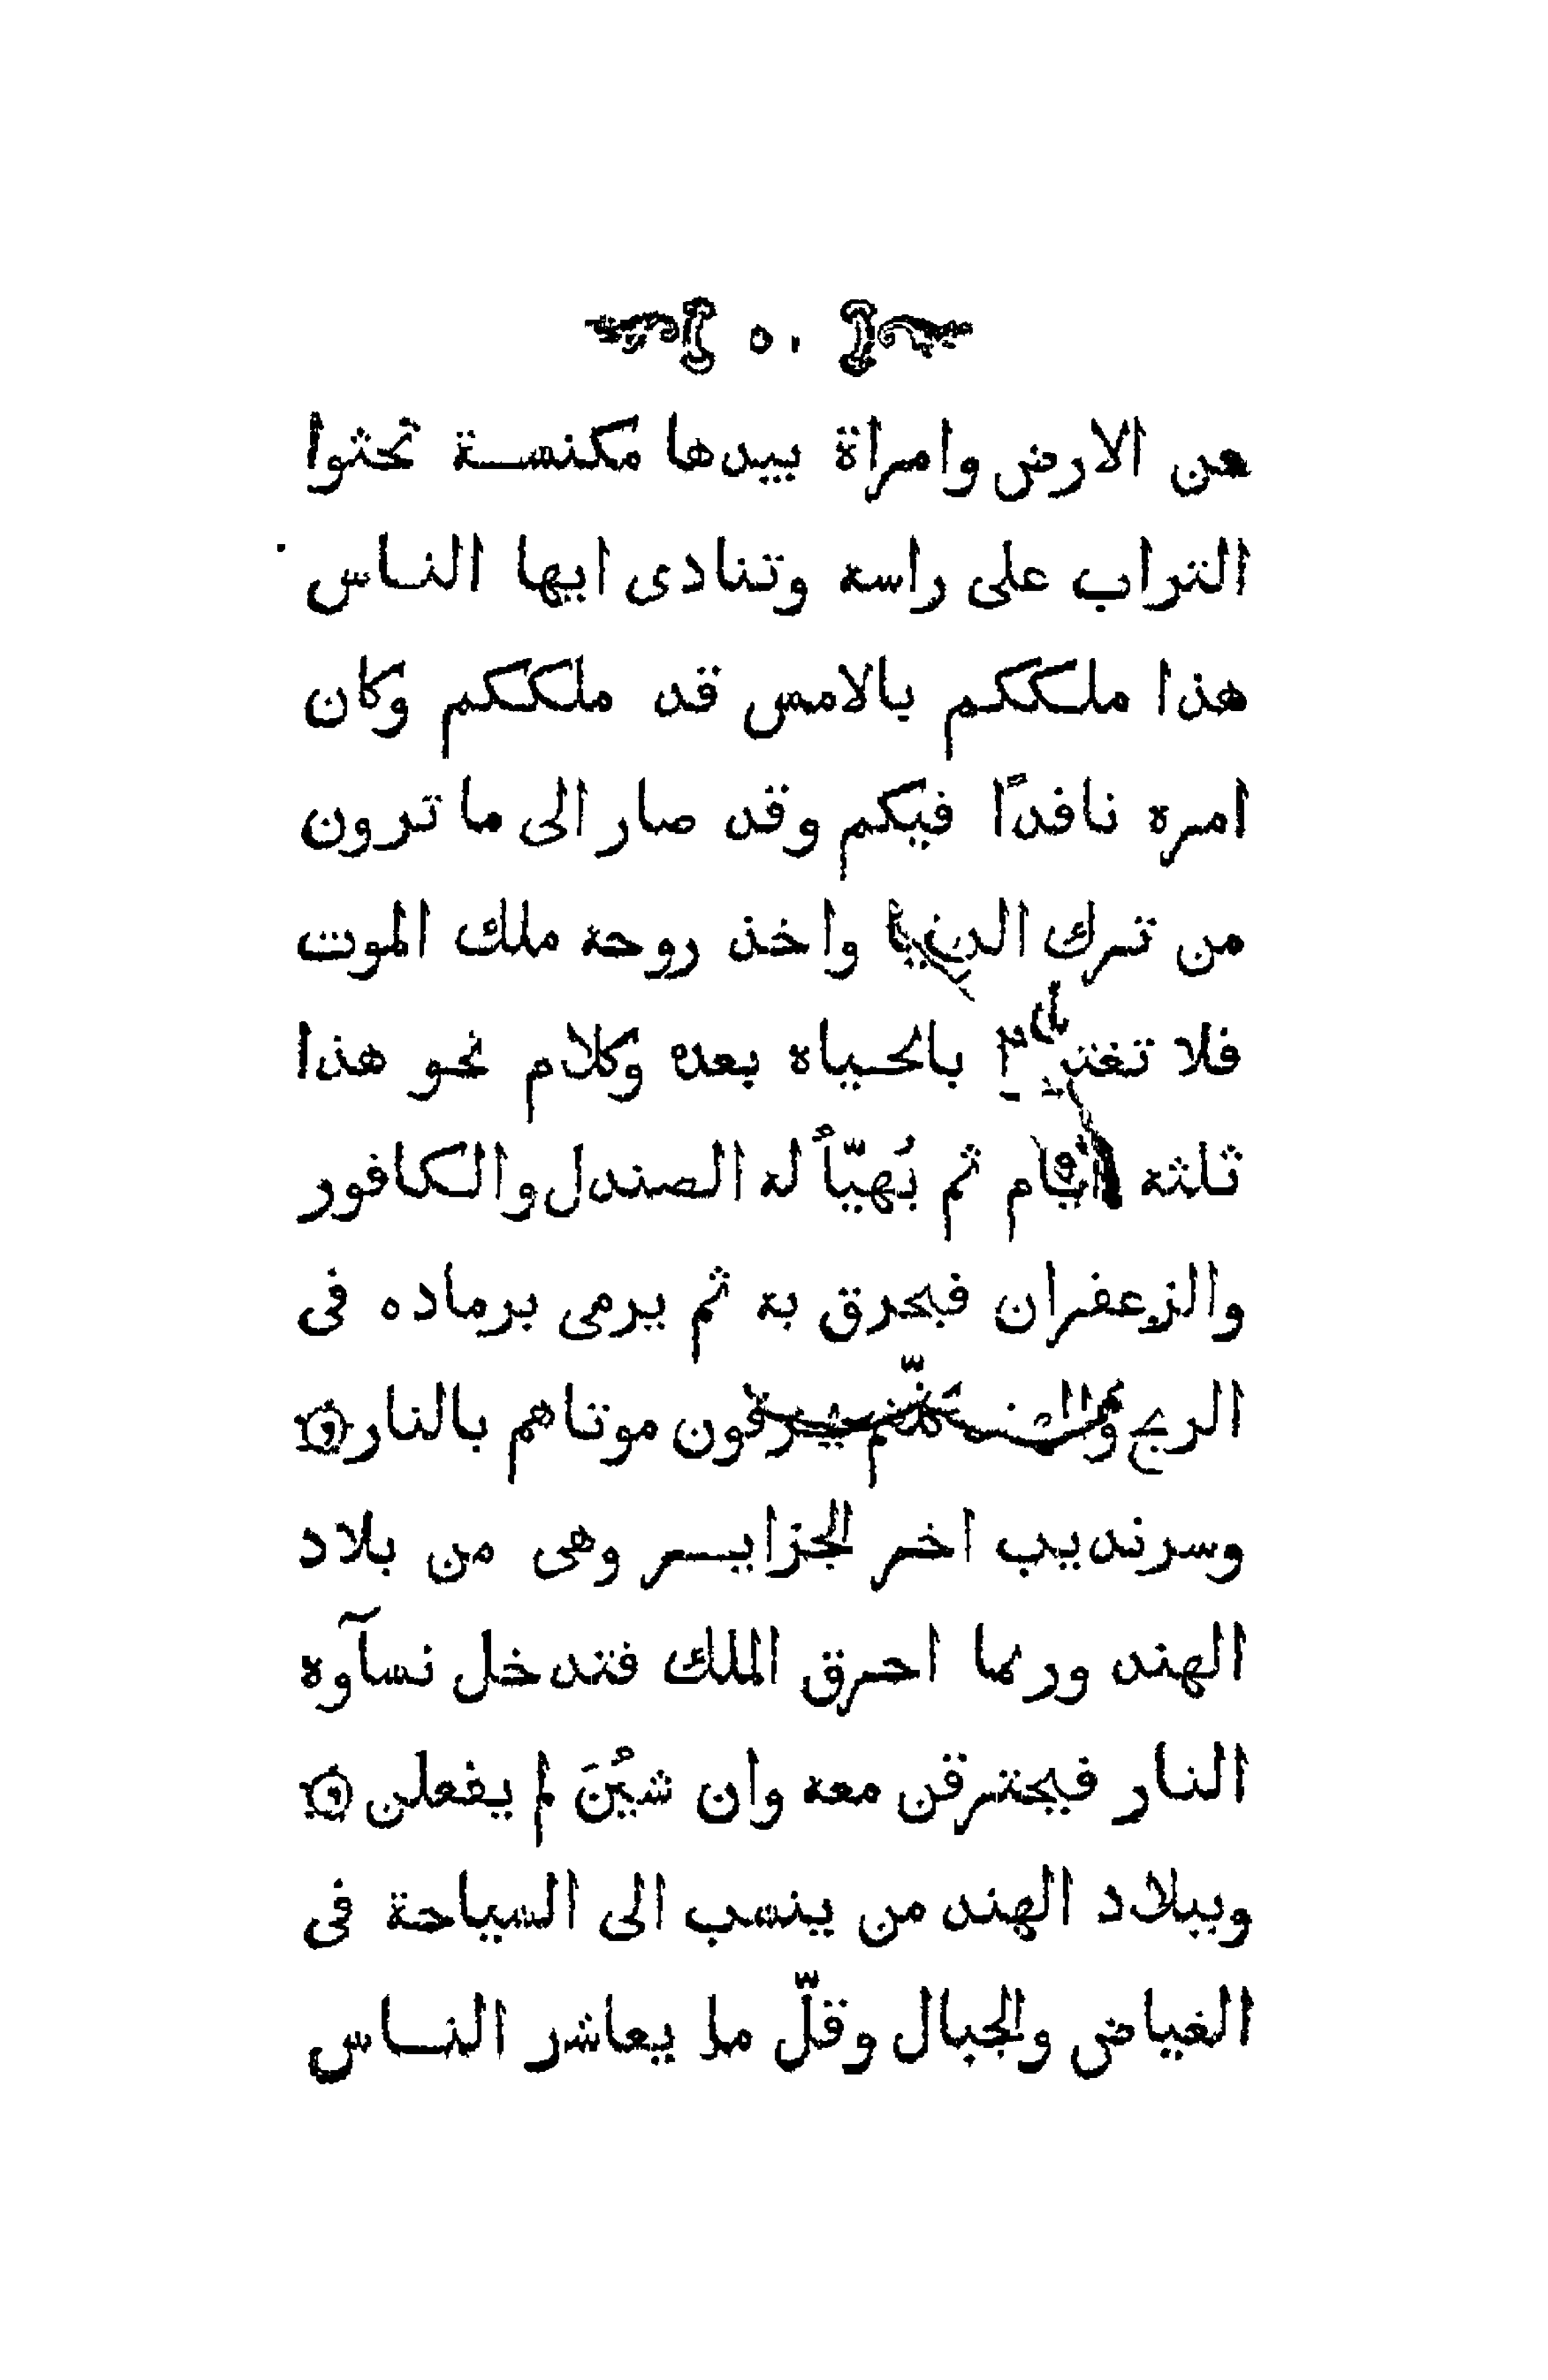 ٥٠
عن الارض وامراة بيدها مكنسة تحثوا
التراب على راسه وتنادى ايها الناس
هذا ملككم بالامس قد ملككم وكان
امره نافدًا فيكم وقد صار الى ما ترون
من ترك الدنيا واخذ روحه ملك الموت
فلا بالحياه بعده وكلام نحو هذا
ثلثه ايام ثم يُهيّأ له الصندل والكافور
والزعفران فيحرق به ثم يرمى برماده فى
الريح والهند كلّهم يحرقون موتاهم بالنار
وسرنديب اخر الجزاير وهى من بلاد
الهند وربما احرق الملك فتدخل نسآوه
النار فيحترقن معه وان شيُنَ لم يفعلن
وببلاد الهند من ينسب الى السياحة فى
الغياض والجبال وقلّ ما يعاشر الناس